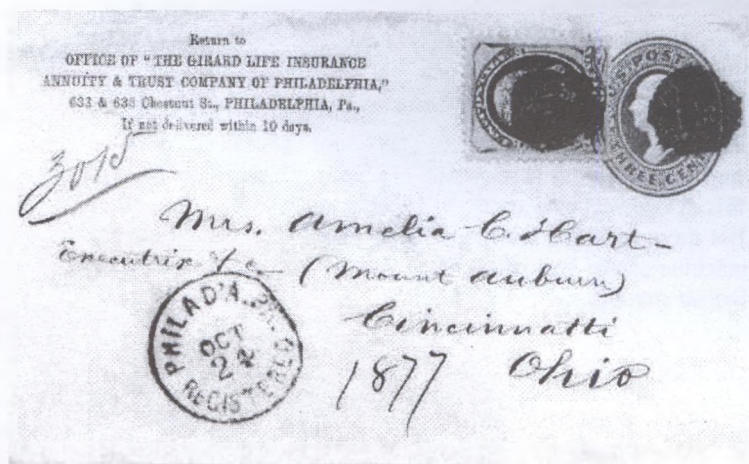 Return to
OFFICE OF "THE GIRARD LIFE INSURANCE
ANNUITY & TRUST COMPANY OF PHILADELPHIA,"
633 & 635 Chestnut St., PHILADELPHIA, Pa.,
If not delivered within 10 days.
U.S. POST
THREE CENT
3015
Mrs. Amelia C. Hart
Executrix &c (Mount Auburn)
Cincinnatti
Ohio
1877
PHILAD'A. PA.
OCT
24
REGISTERED